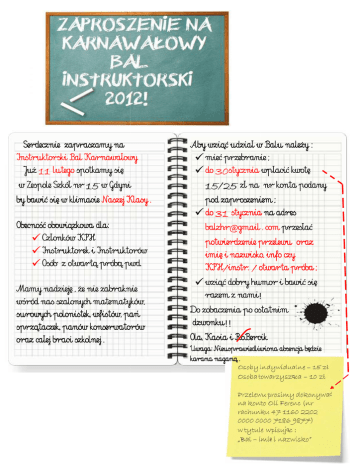 ZAPROSZENIE NA
KARNAWAŁOWY
BAL
INSTRUKTORSKI
2012!
Serdecznie zapraszamy na
Instruktorski Bal Karnawałowy.
Już 11 lutego spotkamy się
w Zespole Szkół nr 15 w Gdyni
by bawić się w klimacie Naszej Klasy.
Obecność obowiązkowa dla:
✓ Członków KPH
✓ Instruktorek i Instruktorów
✓ Osób z otwartą próbą pwd
Mamy nadzieję, że nie zabraknie
wśród nas szalonych matematyków,
surowych polonistek, wfistów, pań
sprzątaczek, panów konserwatorów
oraz całej braci szkolnej.
Aby wziąć udział w Balu należy:
✓ mieć przebranie;
✓ do 30 stycznia wpłacić kwotę
15/25 zł na nr konta podany
pod zaproszeniem;
✓ do 31 stycznia na adres
balzhr@gmail.com przesłać
potwierdzenie przelewu oraz
imię i nazwiska info czy
KPH/instr./otwarta próba;
✓ wziąć dobry humor i bawić się
razem z nami!
Do zobaczenia po ostatnim
dzwonku!!
Ola, Kasia i
Uwaga: Nieusprawiedliwiona absencja będzie
karana naganą.
Osoby indywidualne – 15 zł
Osoba towarzysząca – 10 zł
Przelewu prosimy dokonywać
na konto Oli Ferenc (nr
rachunku 47 1160 2202
0000 0000
w tytule wpisując:
„Bal – imię i nazwisko"